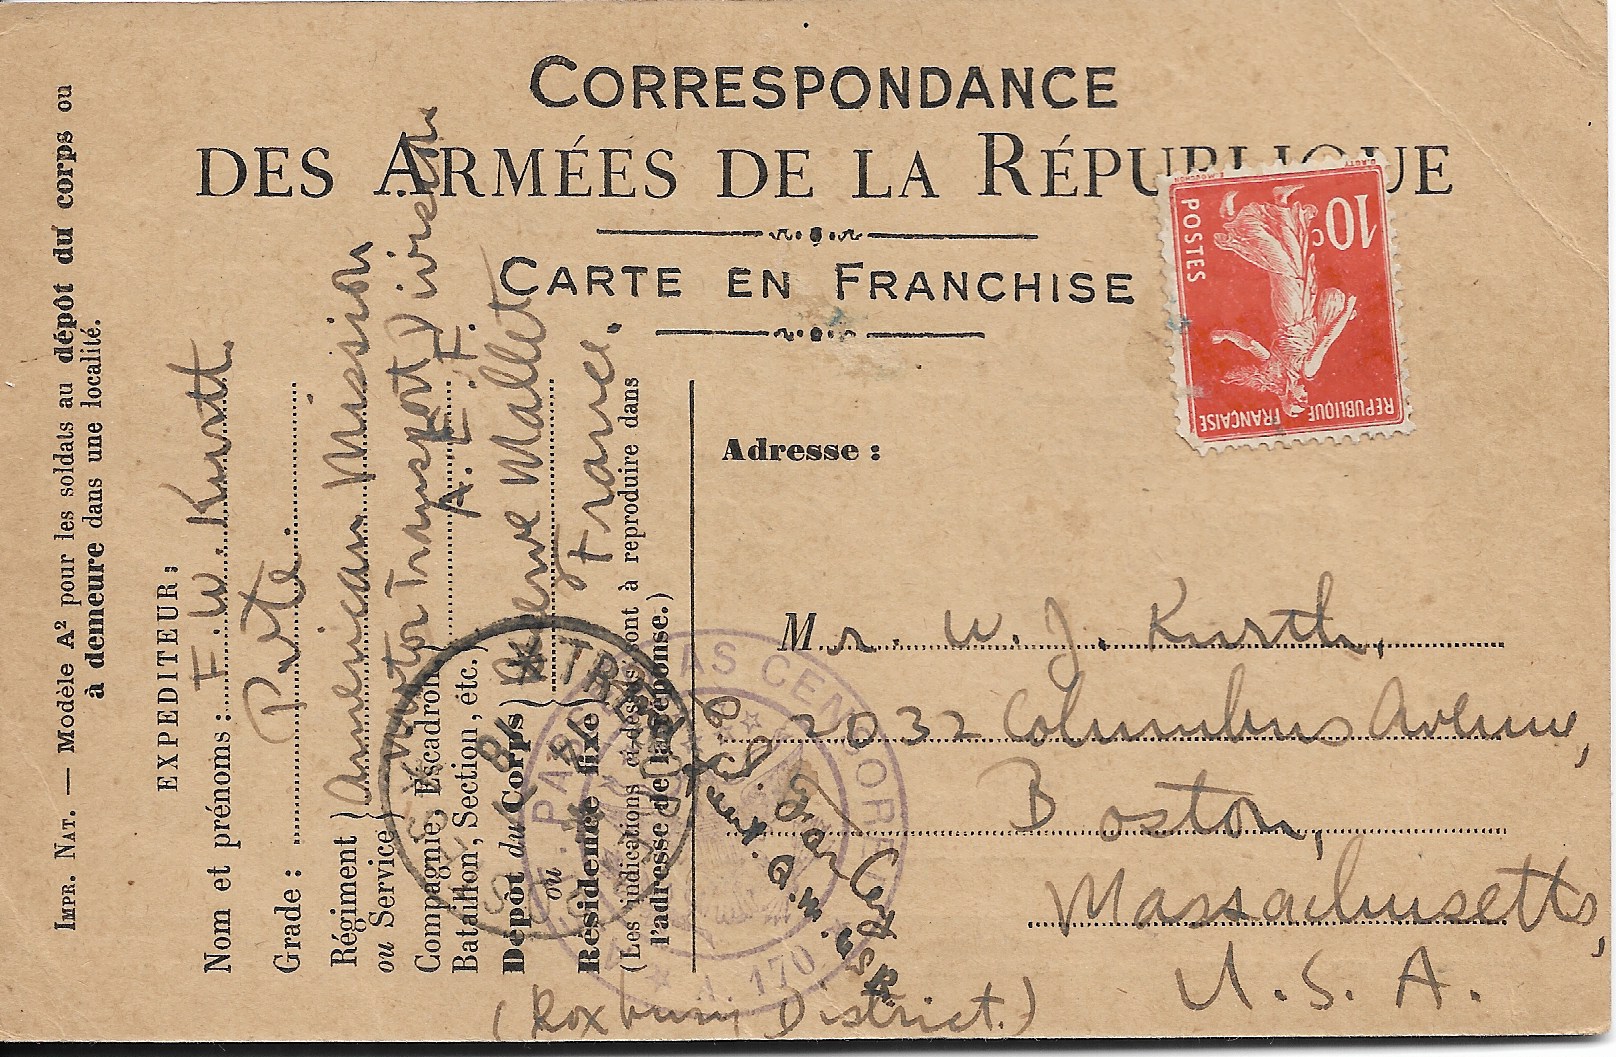 CORRESPONDANCE
DES ARMÉES DE LA RÉPUBLIQUE
CARTE EN FRANCHISE
10c
POSTES
REPUBLIQUE FRANÇAISE
Adresse :
Mr. W. J. Kurth,
2032 Columbus Avenue,
Boston,
Massachusetts,
U. S. A.
(Roxbury District.)
IMPR. NAT. — Modèle A² pour les soldats au dépôt du corps ou
à demeure dans une localité.
EXPÉDITEUR :
Nom et prénoms : F. W. Kurth.
Grade : Pvte.
Régiment ou Service } American Mission
Compagnie, Escadron, Motor Transport Division
Bataillon, Section, etc. } A. E. F.
Dépôt du Corps } Reserve Mallet
ou
Résidence fixe } France.
(Les indications ci-dessus sont à reproduire dans
l'adresse de la réponse.)
PASSED AS CENSORED
A. 170